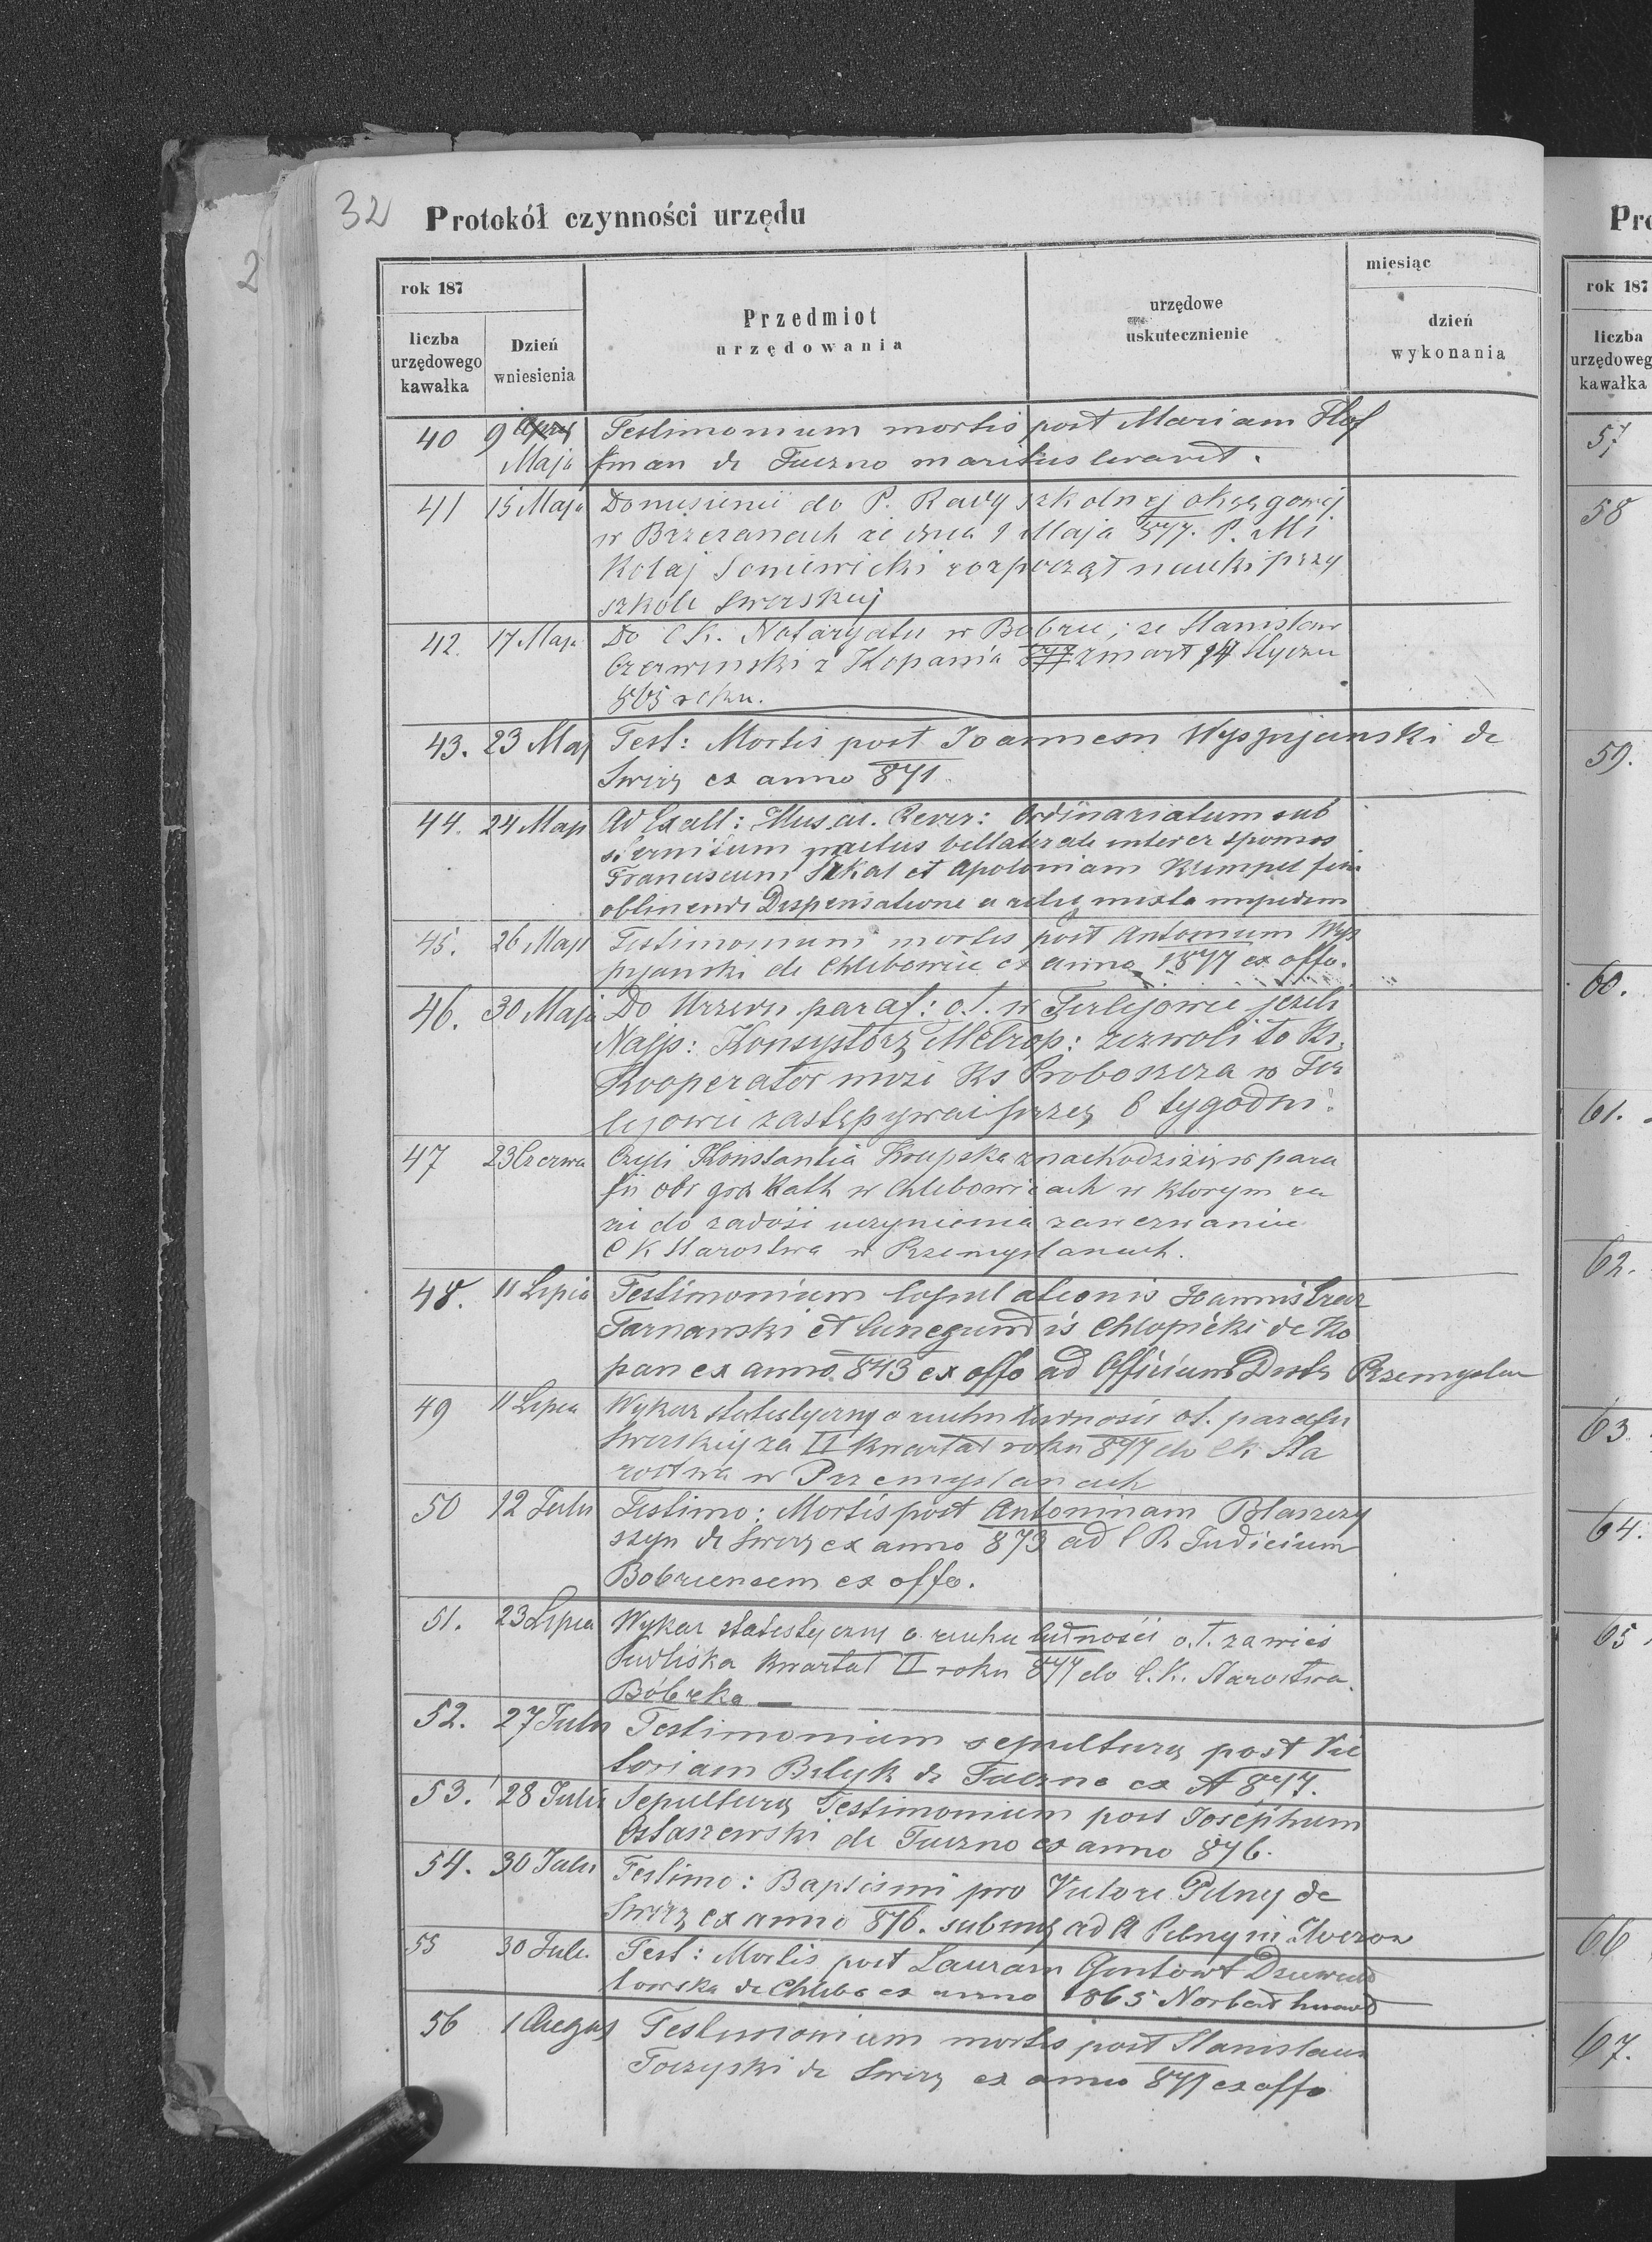 32
Protokół czynności urzędu
2
rok 187
liczba urzędowego kawałka
Dzień wniesienia
Przedmiot urzędowania
urzędowe uskutecznienie
miesiąc
dzień wykonania
40 9 Maja Testimonium mortis post Mariam Hof
fman de Tuczno maritus
41 15 Maja Doniesienie do P. Rady szkolnej okręgowej
w Brzeżanach że dnia 9 Maja 877. P. Mi
kołaj Soniewicki rozpoczął nauki przy
szkole Swirskiej
42. 17 Maja Do C K. Notaryatu w Bobrce, że Stanisław
Czerwinski z Kopania zmarł 14 Styczn
865 roku.
43. 23 Maj Test: Mortis post Joannem Wyspyjanski de
Swirz ex anno 871.
44. 24 Maja Ad Exell: Rever: Ordinariatum sub
inter sponsos
Franciscum et Apoloniam
Dispensatione mixta
45. 26 Maja Testimonium mortis post Antonium Wys
pyanski de Chlebowice ex anno 1877 ex offo.
46. 30 Maja Do Urzędu paraf: o.ł. w Firlejowie jeżeli
Najp: Konsystorz Metrop: zezwoli to Ks.
Kooperator może Ks Proboszcza w Fir
lejowie zastępywać przez 6 tygodni.
47 23 Czerwa Czyli Konstantia Krupska znachodzi się w para
fii obr gr kath w Chlebowicach w którym ra
zie do zadość uczynienia zawezwaniu
C K Starostwa w Przemyslanach.
48. 11 Lipca Testimonium Copulationis Joannis
Tarnawski et Cunegundis Chlopicki de Ko
pan ex anno 843 ex offo ad Officium Przemyslan
49 11 Lipca Wykaz statystyczny o ruchu ludności oł. parafii
Swirskiej za II kwartał roku 877 do C K Sta
rostwa w Przemyslanach
50 12 Julii Testimo: Mortis post Antoninam Blaszczy
szyn de Swirz ex anno 873 ad C R Judicium
Bobrcensem ex offo.
51. 23 Lipca Wykaz statystyczny o ruchu ludności o.ł. za wieś
Sudliska kwartał II roku 877 do C.K. Starostwa.
Bóbrka
52. 27 Julii Testimonium sepulturę post Vic
toriam Bilyk de Tuczno ex A 877.
53. 28 Julii Sepulturę Testimonium post Josephum
Ostaszewski de Tuczno ex anno 876.
54. 30 Julii Testimo: Baptismi pro Victore Pilny de
Swirz ex anno 876. ad A Pilny in
55 30 Juli. Test: Mortis post Lauram Gontowt
towska de Chlebo ex anno 1865 Norbert
56 1 August Testimonium mortis post Stanislaum
Toczyski de Swirz ex anno 871 ex offo
Pro
rok 187
liczba urzędoweg kawałka
57,
58
59.
60.
61.
62.
63.
64.
65
66
67.